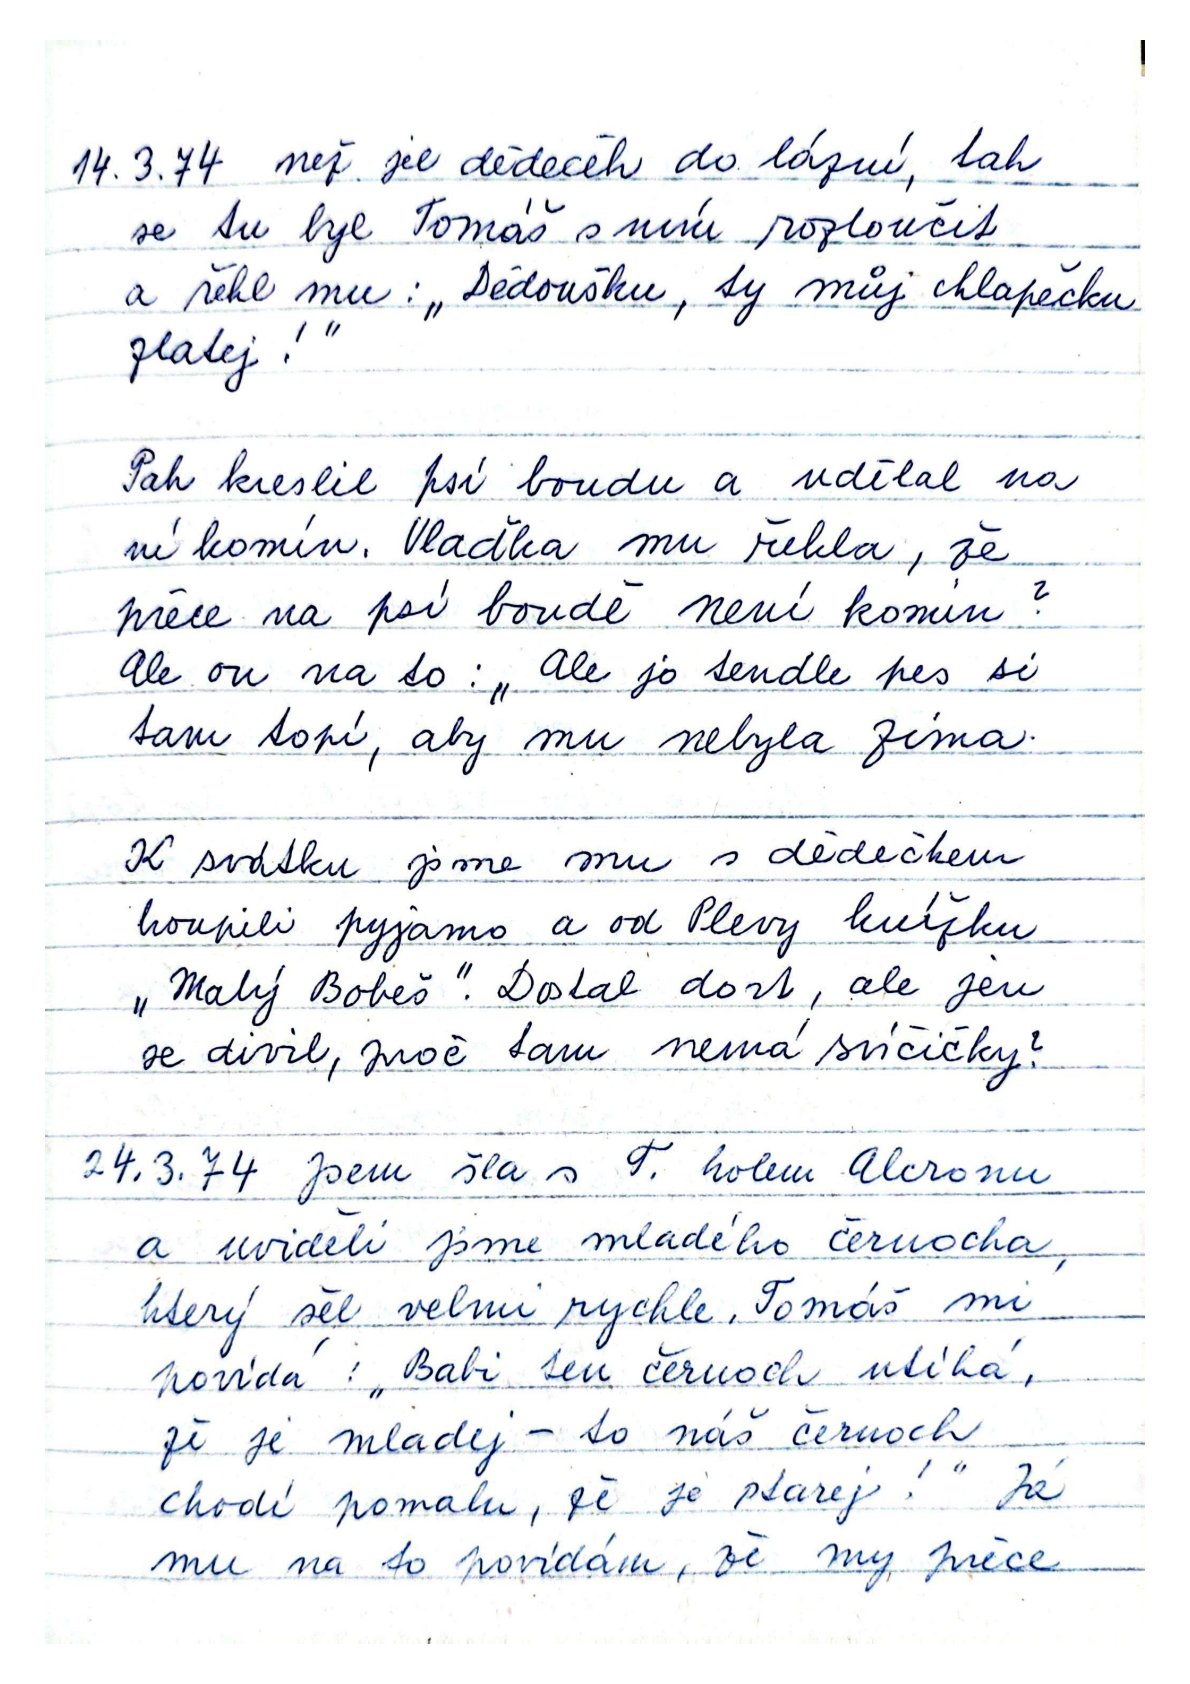 14.3.74 než jel dědeček do lázní, tak
se tu byl Tomáš s ním rozloučit
a řekl mu : „Dědoušku, ty můj chlapečku
zlatej !"
Pak kreslil psí boudu a udělal na
ní komín. Vlaďka mu řekla, že
přece na psí boudě není komín?
Ale on na to : „Ale jo tendle pes si
tam topí, aby mu nebyla zima.
K svátku jsme mu s dědečkem
koupili pyjamo a od Plevy knížku
„Malý Bobeš". Dostal dort, ale jen
se divil, proč tam nemá svíčičky?
24.3.74 jsem šla s T. kolem Alcronu
a uviděli jsme mladého černocha,
který šel velmi rychle. Tomáš mi
povídá : „Babi ten černoch utíká,
že je mladej – to náš černoch
chodí pomalu, že je starej !" Já
mu na to povídám, že my přece